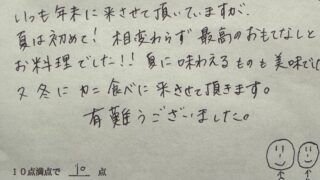 いつも年末に来させて頂いていますが、
夏は初めて! 相変わらず最高のおもてなしと
お料理でした!! 夏に味わえるものも美味でし
又冬にカニ食べに来させて頂きます。
有難うございました。
10点満点で 10 点